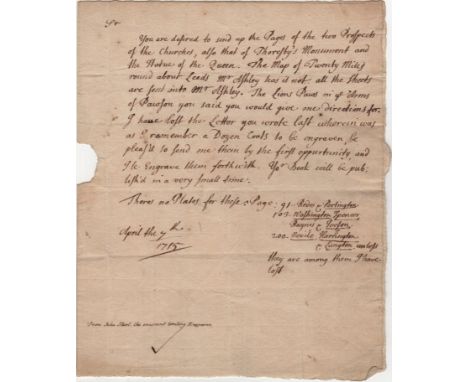 Sr
You are desired to send up the Pages of the two Prospects
of the Churches, also that of Thoresby's Monument and
the Statue of the Queen. The Map of Twenty Miles
round about Leeds Mr Ashley has it not. all the Sheets
are sent into Mr Ashley. The Lions Paws in ye Arms
of Pawson you said you would give me directions for.
I have lost the Letter you wrote last wherein was
as I remember a Dozen Coats to be engraven be
pleas'd to send me them by the first opportunity, and
I'le Engrave them forthwith. Yor Book will be pub:
lish'd in a very small time.
Theres no Plates for these Page: 91
103 Washington Spencer
200 Nevile Harrington
Langton unless
they are among them I have
lost
April the 7th
1715
From John Sturt the eminent London Engraver